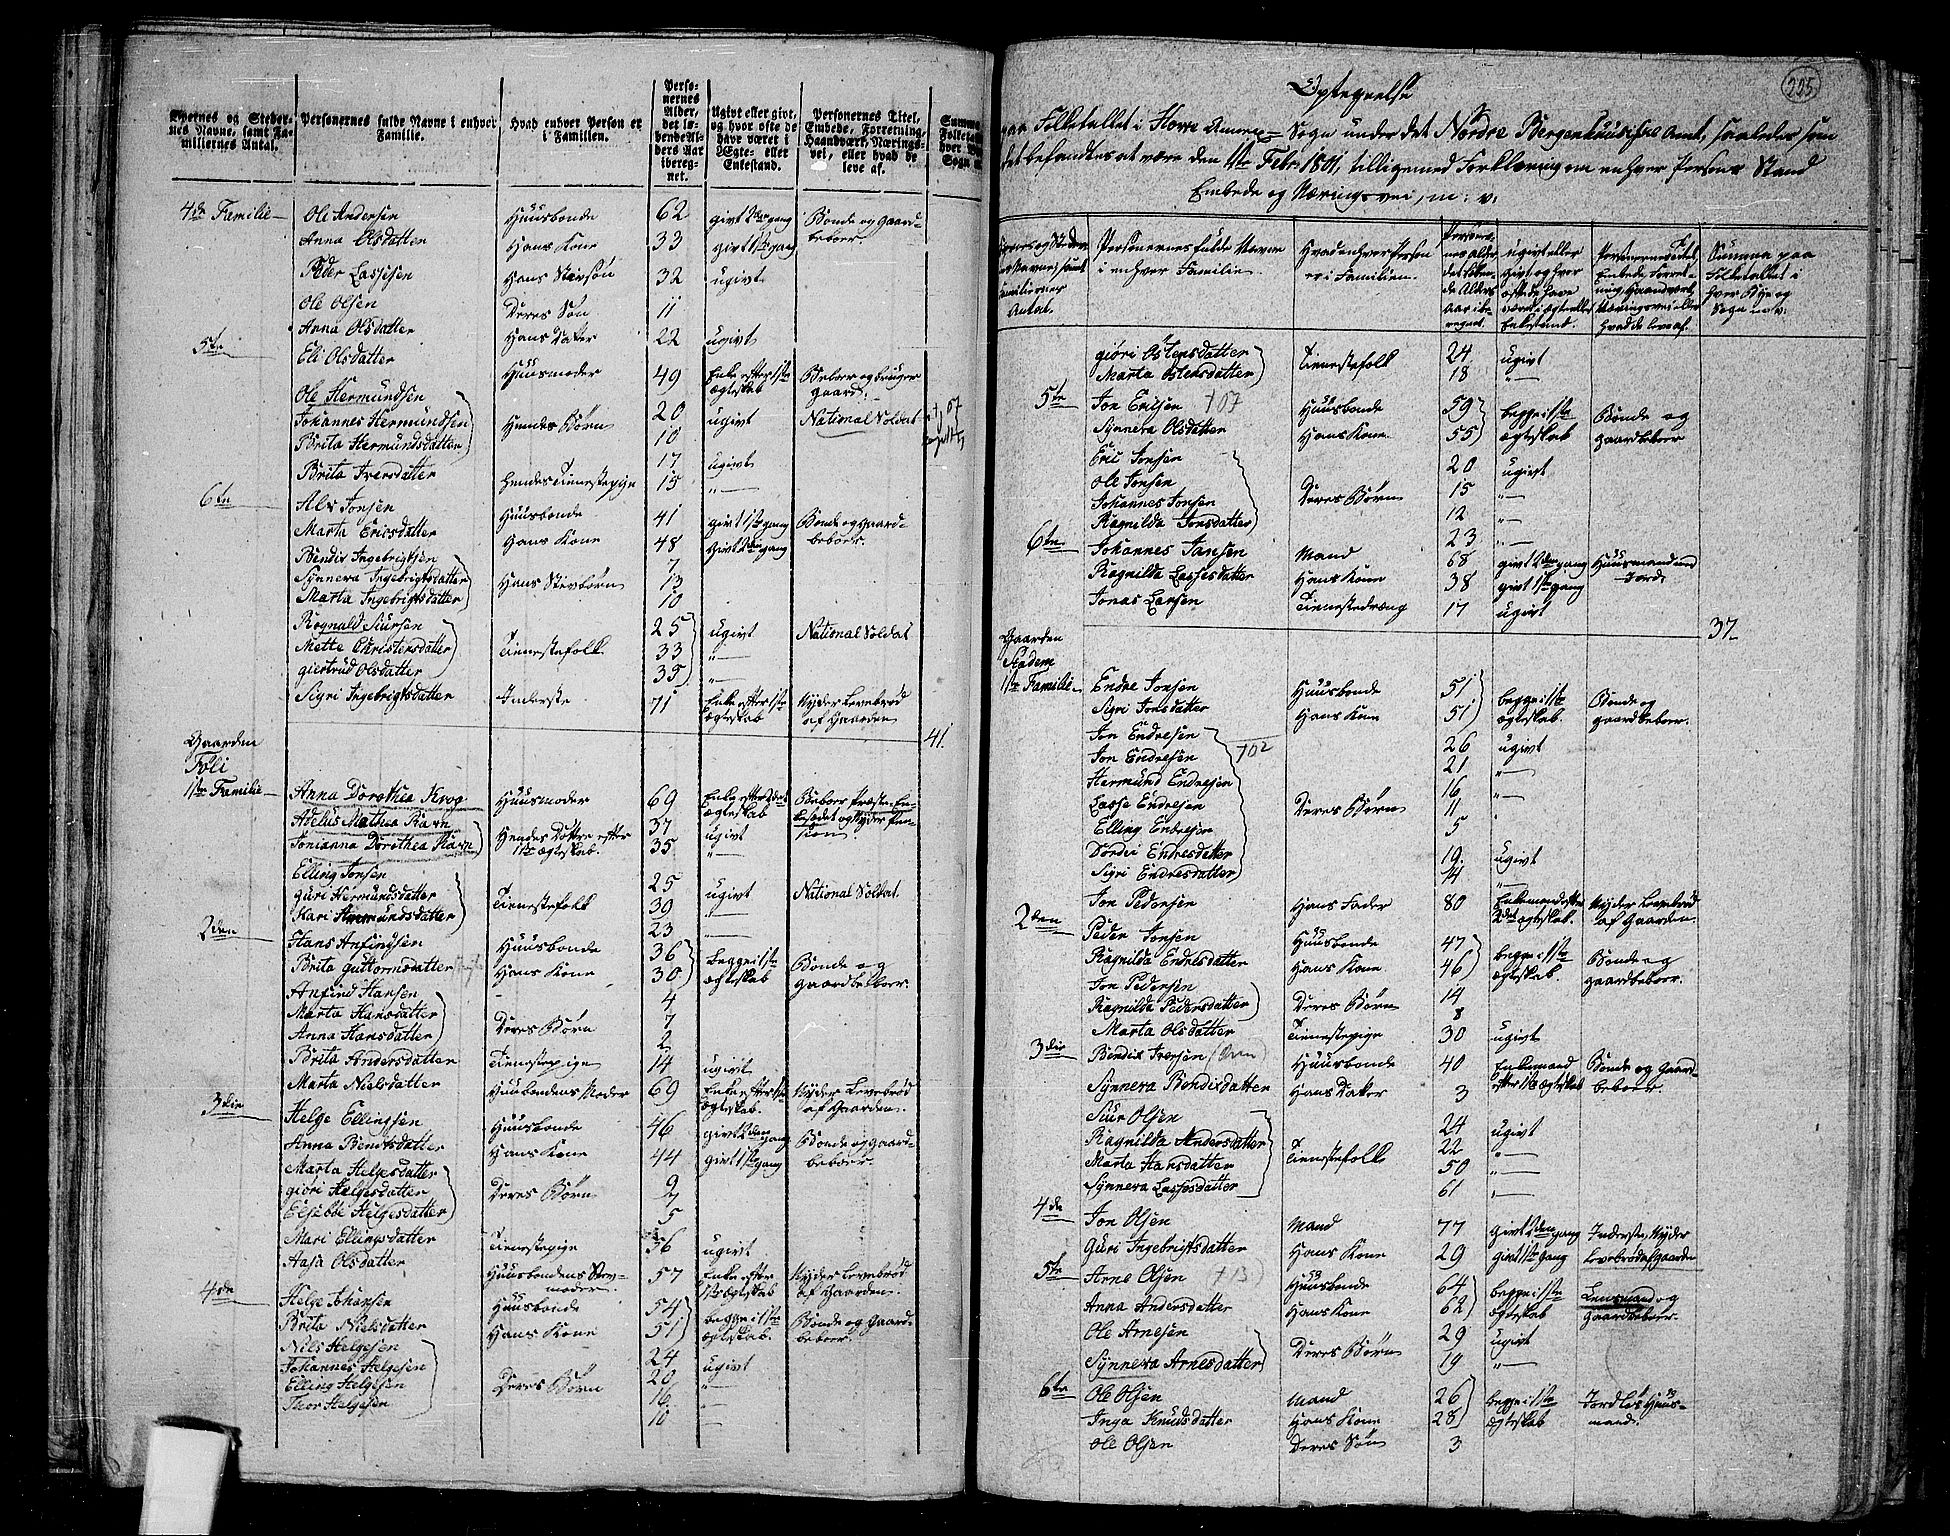 Byernes og Steder-
nes Navne, samt Fa-
miliernes Antal.
Personernes fulde Navne i enhver
Familie.
Hvad enhver Person er
i Familien.
Perso-
nernes
Alder,
det lø-
bende Al-
ders Aar
ibereg-
net.
Ugivt eller givt,
og hvor ofte de
have været i
Egte- eller
Enkestand.
Personernes Titel,
Embede, Forretning,
Haandværk, Nærings-
vei, eller hvad de
leve af.
4de Familie Ole Andersen Huusbonde 62 givt 2den gang Bonde og Gaard-
Anna Olsdatter Hans Kone 33 givt 1ste gang beboer.
Peder Lassesen Hans Stevsøn 32 ugivt
Ole Olsen Deres Søn 11
Anna Olsdatter Hans Datter 22 ugivt
5te Eli Olsdatter Huusmoder 49 Enke efter 1ste Beboer og bruger
ægteskab gaard.
Ole Hermundsen 20 ugivt National Soldat
Johannes Hermundsen Hendes Børn 10
Brita Hermundsdatter 17 ugivt
Brita Iversdatter Hendes Tienestepige 15 "
6te Alv Jonsen Huusbonde 41 givt 1ste gang Bonde og Gaard-
Marta Ericsdatter Hans Kone 48 givt 2den gang beboer.
Bendix Ingebrigtsen 7
Synneva Ingebrigtsdatter Hans Stevbørn 13
Marta Ingebrigtsdatter 10
Rognald Siursen 25 ugivt National Soldat
Mette Christensdatter Tienestefolk 33 "
Giertrud Olsdatter 35 "
Sigri Ingebrigtsdatter Inderste 71 Enke efter 1ste Nyder Levebrød
ægteskab af Gaarden
41.
Gaarden
Foli
1ste Familie Anna Dorothea Krog Huusmoder 69 Enke efter 2det Beboer Præste En-
ægteskab
Adelus Mathea Ravn Hendes Døttre efter 37 ugivt
Jonianna Dorothea Ravn 1ste ægteskab. 35 "
Elling Jonsen 25 ugivt National Soldat.
Guri Hermundsdatter Tienestefolk 39 "
Kari Hermundsdatter 23 "
2den Hans Anfindsen Huusbonde 36 begge i 1ste Bonde og
Brita Guttormsdatter Hans Kone 30 ægteskab gaardbeboer.
Anfind Hansen 4
Marta Hansdatter Deres Børn 7
Anna Hansdatter 2
Brita Andersdatter Tienestepige 14 ugivt
Marta Nielsdatter Huusbondens Moder 69 Enke efter 1ste Nyder Levebrød
ægteskab. af Gaarden.
3die Helge Ellingsen Huusbonde 46 givt 2den gang Bonde og gaard-
Anna Bendtsdatter Hans Kone 44 givt 1ste gang beboer.
Marta Helgesdatter 9
Giøri Helgesdatter Deres Børn 7
Elsebde Helgesdatter 5
Mari Ellingsdatter Tienestepige 56 ugivt
Aasa Olsdatter Huusbondens Stev- 57 Enke efter Nyder Levebrød
moder. 1ste ægteskab af Gaarden.
4de Helge Johansen Huusbonde 54 begge i 1ste Bonde og Gaard-
Brita Nielsdatter Hans Kone 51 ægteskab. beboer.
Nils Helgesen 24 ugivt
Johannes Helgesen Deres Børn 20 "
Elling Helgesen 16 "
Thor Helgesen 10 "
225
Optegnelse
Folketallet i Hove Annex Sogn under det Nordre Bergenhuusiske Amt, saaledes som
det befandtes at være den 1ste Febr. 1801, tilligemed Forklaring om enhver Persons Stand
Embede og Næringsvei, m: v:
Personernes fulde Navne
i enhver Familie
Hvad enhver Person
er i Familien.
Summa paa
Folketallet i
hver Bye og
Sogn m. v.
Giøri Ostensdatter Tienestefolk 24 ugivt
Marta Ostensdatter 18 "
5te Jon Ericsen †07 Huusbonde 59 begge i 1ste Bonde og
Synneva Olsdatter Hans Kone 55 ægteskab gaardbeboer
Eric Jonsen 20 ugivt
Ole Jonsen Deres Børn 15 "
Johannes Jonsen 12 "
Ragnilda Jonsdatter 23 "
6te Johannes Jansen Mand 68 givt 2den gang Huusmand med
Ragnilda Lassesdatter Hans Kone 38 givt 1ste gang Jord.
Jonas Larsen Tienestedreng 17 ugivt
37
Gaarden
Indem
1ste Familie Endre Jonsen Huusbonde 51 begge i 1ste Bonde og
Sigri Jonsdatter Hans Kone 51 ægteskab. gaardbeboer.
Jon Endresen †02 26 ugivt
Jon Endresen 21 "
Hermund Endresen 16 "
Lasse Endresen Deres Børn 11
Elling Endresen 5
Dordei Endresdatter 19 ugivt
Sigri Endresdatter 14 "
Jon Pedersen Hans Fader 80 Enkemand efter Nyder Levebrød
2det ægteskab. af Gaarden.
2den Peder Jonsen Huusbonde 47 begge i 1ste Bonde og
Ragnilda Endresdatter Hans Kone 46 ægteskab gaardbeboer.
Jon Pedersen Deres Børn 14
Ragnilda Pedersdatter 8
Marta Olsdatter Tienestepige 30 ugivt
3die Bendix Iversen Huusbonde 40 Enkemand Bonde og Gaard-
Synneva Bendixdatter Hans Dater 3 efter 1ste ægteskab beboer.
Siur Olsen 24 ugivt
Ragnilda Andersdatter Tienestefolk 22 "
Marta Hansdatter 50 "
Synneva Lassesdatter 61 "
4de Jon Olsen Mand 77 givt 2den gang Inderste, Nyder
Guri Ingebrigtsdatter Hans Kone 29 givt 1ste gang Levebrød af gaarden
5te Arne Olsen (†13) Huusbonde 64 begge i 1ste Lensmand og
Anna Andersdatter Hans Kone 62 ægteskab Gaardbeboer.
Ole Arnesen Deres Børn 29 ugivt
Synneva Arnesdatter 19 "
6te Ole Olsen Mand 26 begge i 1ste Jordløs Huus-
Inga Knudsdatter Hans Kone 28 ægteskab mand.
Ole Olsen Deres Søn 3